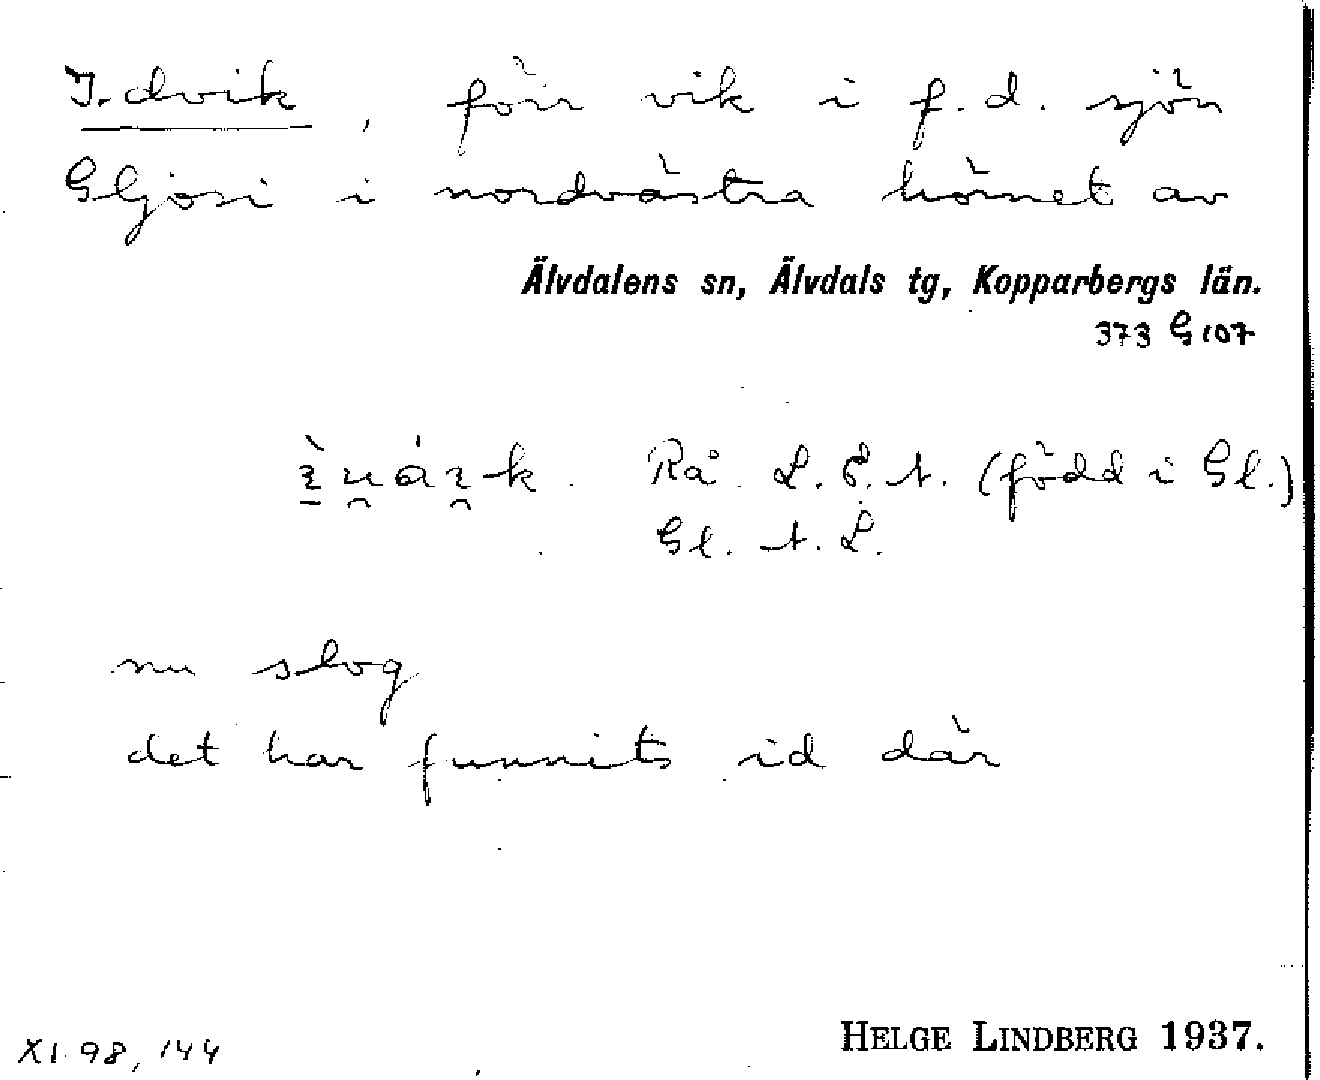 Idvik, förr vik i f.d. sjön
Gljosi i nordvästra hörnet av
Älvdalens sn, Älvdals tg, Kopparbergs län.
373 G 107
Rå. L. E. A. (född i Gl.)
Gl. A. L.
nu slog
det har funnits id där
XI 98, 144
HELGE LINDBERG 1937.